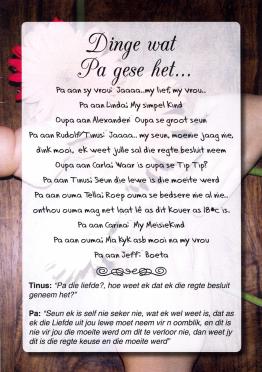 Dinge wat
Pa gese het...
Pa aan sy vrou: Jaaaa..my lief, my vrou..
Pa aan Linda: My simpel Kind
Oupa aan Alexander: Oupa se groot seun
Pa aan Rudolf/Tinus: Jaaaa.. my seun, moenie jaag nie,
dink mooi, ek weet julle sal die regte besluit neem
Oupa aan Carla: Waar is oupa se Tip Tip?
Pa aan Tinus: Seun die lewe is die moeite werd
Pa aan ouma Tella: Roep ouma se bedsere nie al nie..
onthou ouma mag net laat lê as dit kouer as 18°c is.
Pa aan Carina: My MeisieKind
Pa aan ouma: Ma Kyk asb mooi na my vrou
Pa aan Jeff: Boeta
Tinus: "Pa die liefde?, hoe weet ek dat ek die regte besluit
geneem het?"
Pa: "Seun ek is self nie seker nie, wat ek wel weet is, dat as
ek die Liefde uit jou lewe moet neem vir n oomblik, en dit is
nie vir jou die moeite werd om dit te verloor nie, dan weet jy
dit is die regte keuse en die moeite werd"